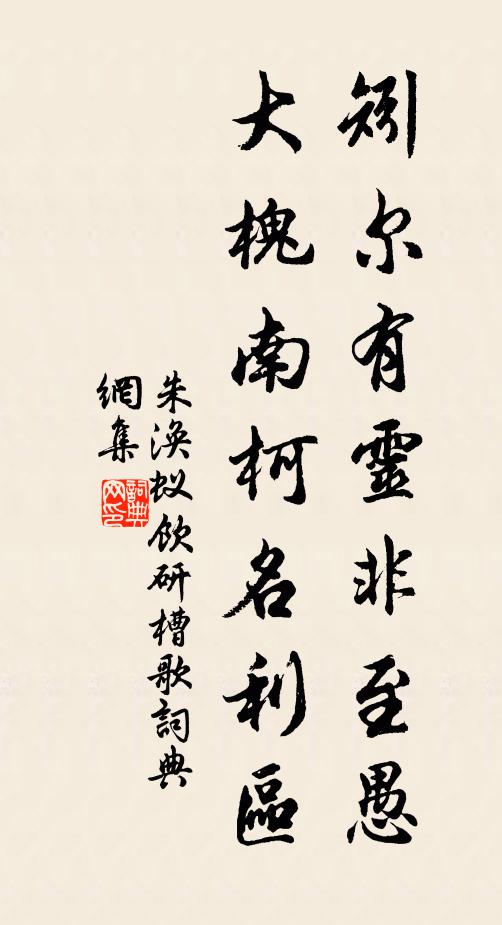 矧尔有靈非至愚
大槐南柯名利區
朱渙蚁飲研槽歌詞典
網集
詞典
网印